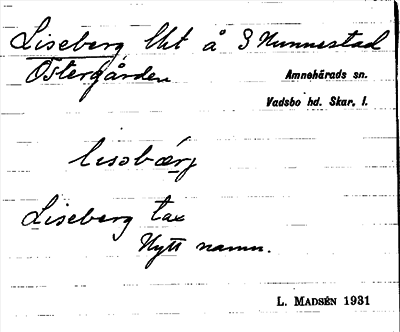 Liseberg lht å 3 Nunnestad
Östergården
Amnehärads sn.
Vadsbo hd. Skar. l.
lisəbærj
Liseberg tax
Nytt namn.
L. MADSÉN 1931